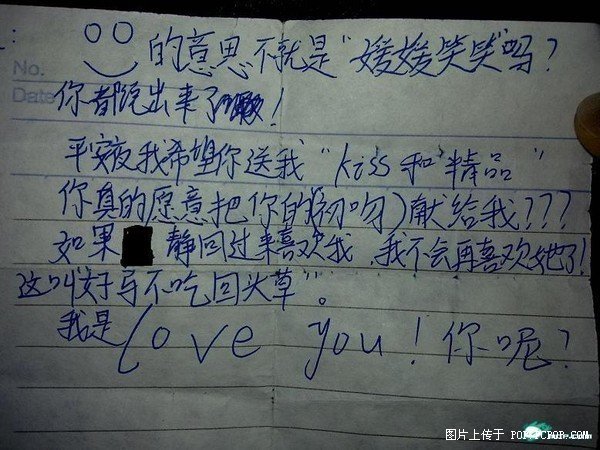 No.
Date
的意思不就是"媛媛笑笑"吗?
你都说出来了!
平安夜我希望你送我"kiss和"精品"
你真的愿意把你的(初吻)献给我???
如果 静回过来喜欢我,我不会再喜欢她了!
这叫"好马不吃回头草"。
我是love you!你呢?
图片上传于 POPPCPOP.COM